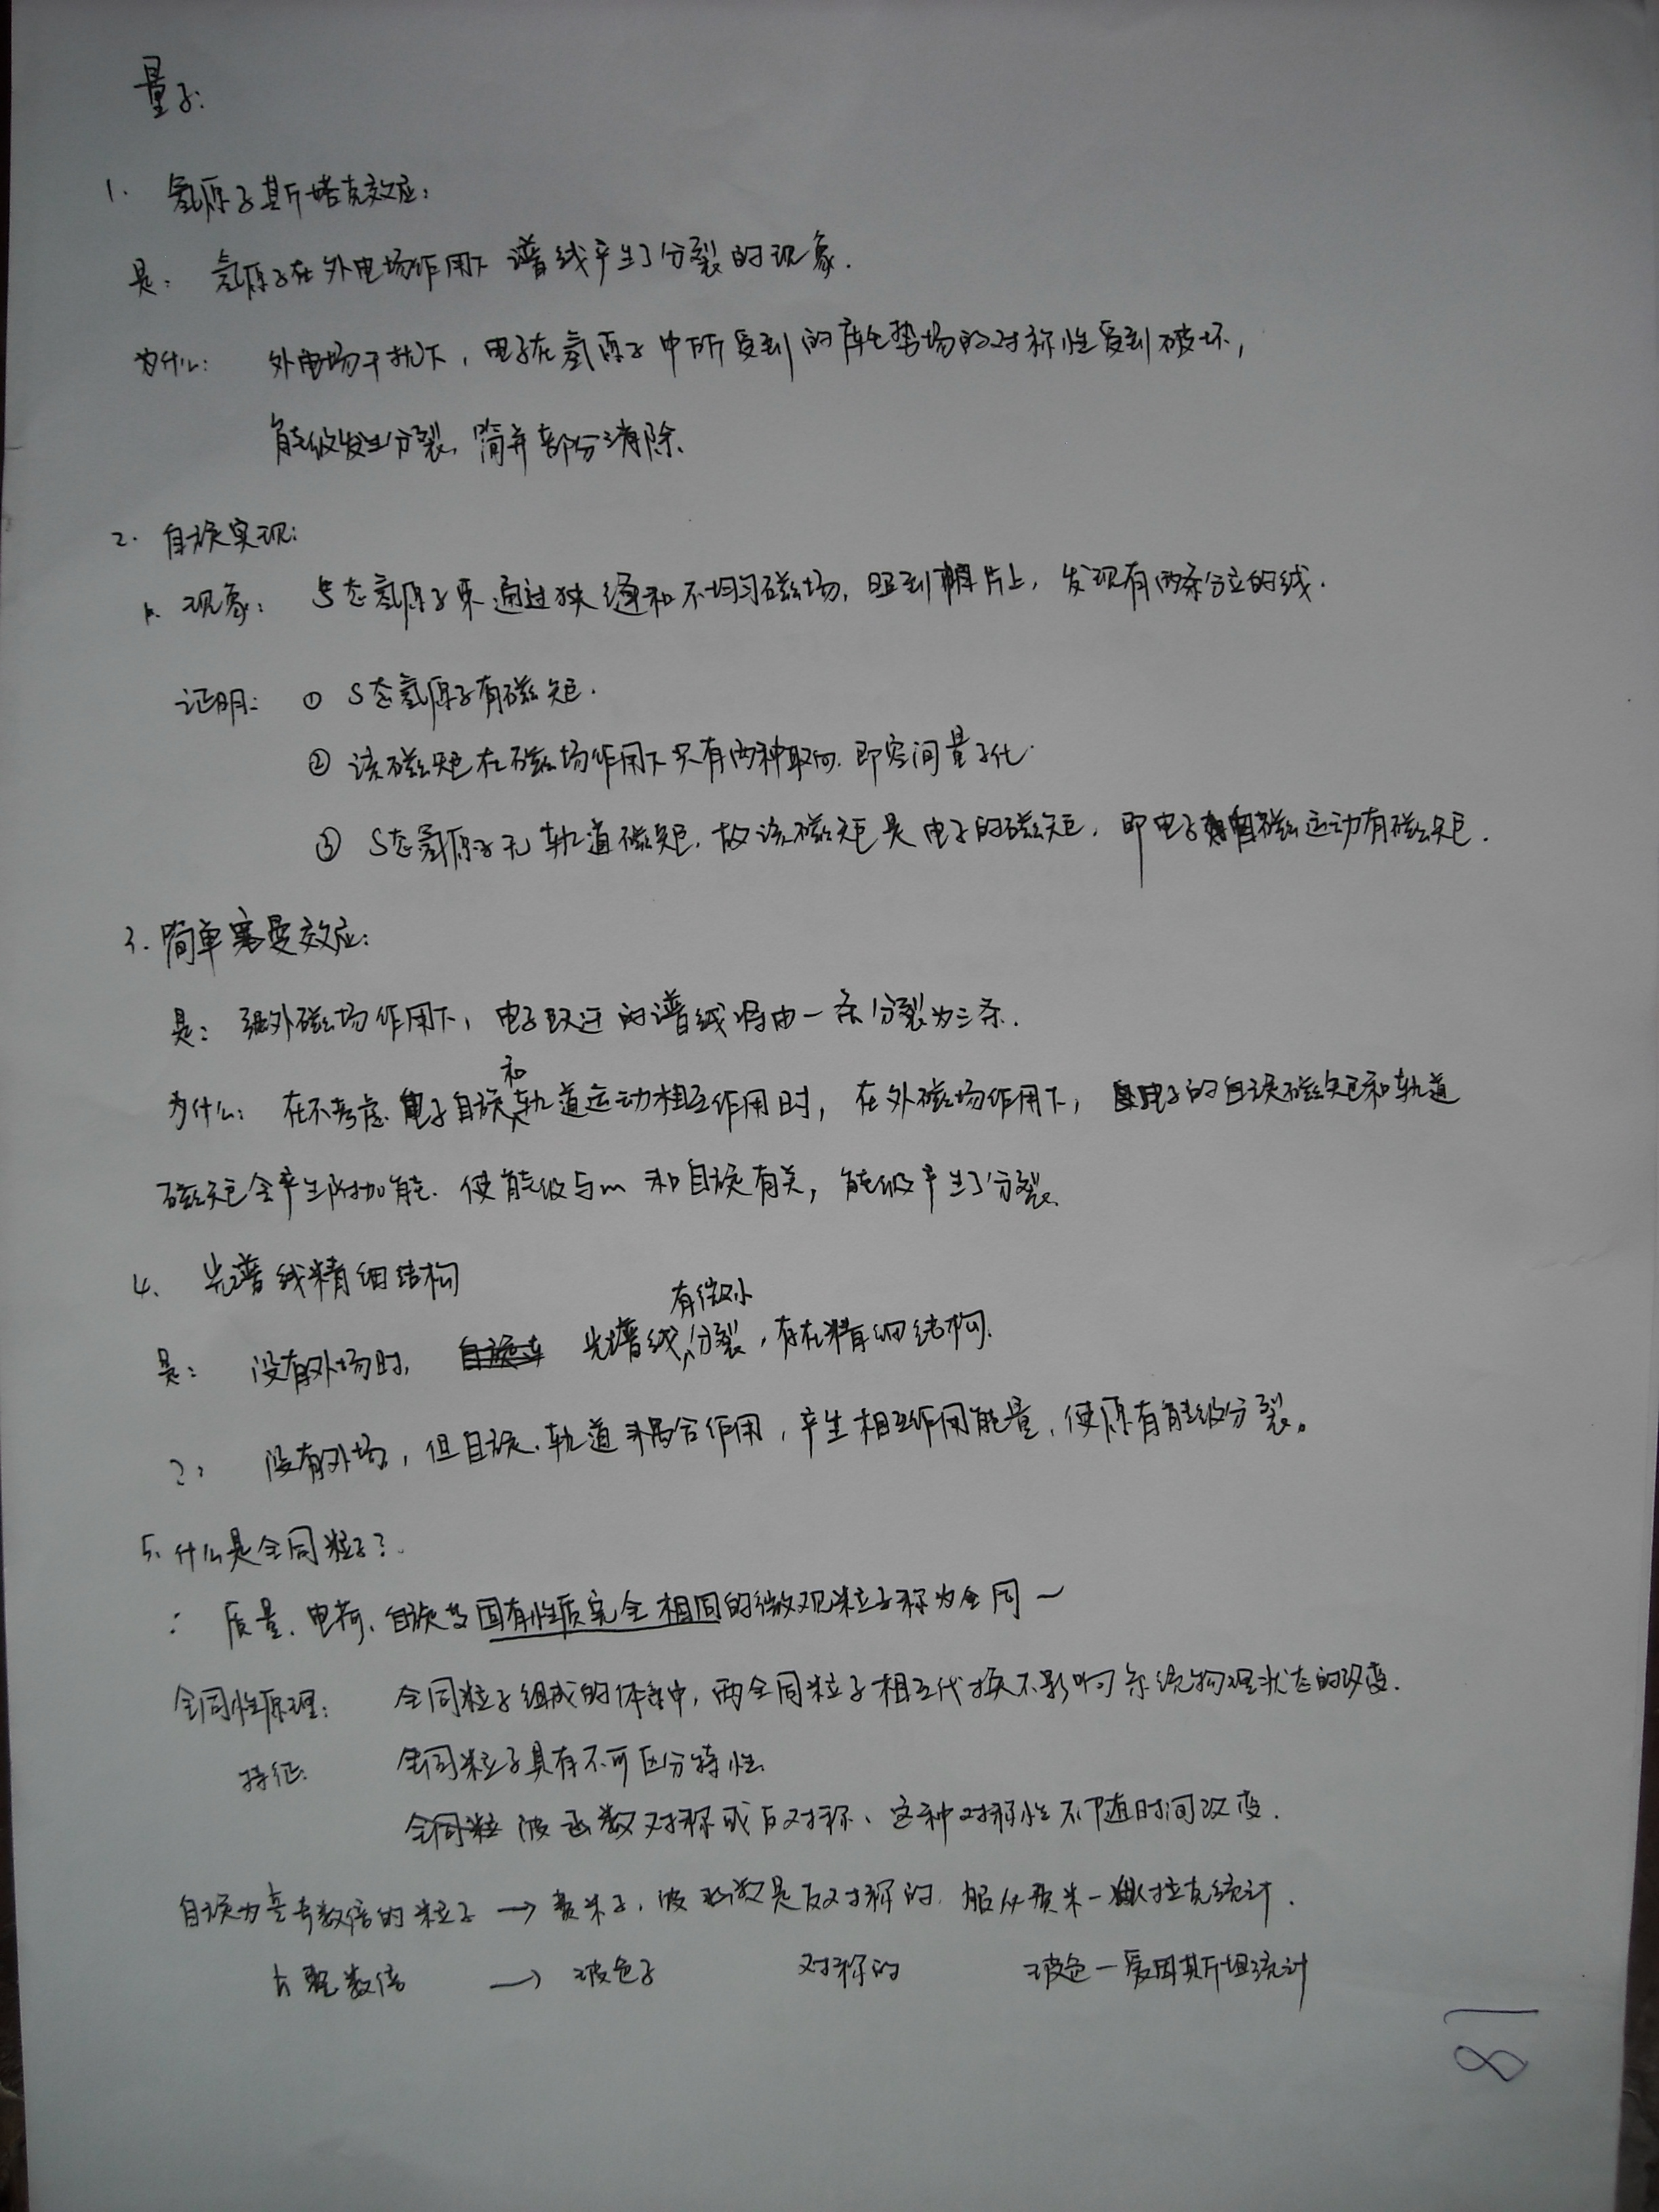 量子:
1. 氢原子斯塔克效应:
是: 氢原子在外电场作用下 谱线产生了分裂的现象.
为什么: 外电场干扰下, 电子在氢原子中所受到的库仑势场的对称性受到破坏,
能级发生分裂, 简并部分消除.
2. 自旋实现:
1. 现象: S态氢原子束通过狭缝和不均匀磁场, 照到片上, 发现有两条分立的线.
证明: ① S态氢原子有磁矩.
② 该磁矩在磁场作用下只有两种取向. 即空间量子化.
③ S态氢原子无轨道磁矩. 故该磁矩是电子的磁矩, 即电子自磁运动有磁矩.
3. 简单塞曼效应:
是: 强外磁场作用下, 电子跃迁的谱线将由一条分裂为三条.
为什么: 在不考虑电子自旋和轨道运动相互作用时, 在外磁场作用下, 电子的自旋磁矩和轨道
磁矩会产生附加能. 使能级与m和自旋有关, 能级产生了分裂.
4. 光谱线精细结构
是: 没有外场时, 光谱线有微小分裂, 存在精细结构.
没有外场, 但自旋.轨道耦合作用, 产生相互作用能量, 使原有能级分裂。
5. 什么是全同粒子?
: 质量. 电荷、自旋等固有性质完全相同的微观粒子称为全同~
全同性原理: 全同粒子组成的体系中, 两全同粒子相互代换不影响系统物理状态的改变.
特征: 全同粒子具有不可区分特性.
波函数对称或反对称、这种对称性不随时间改变.
自旋为奇数倍的粒子 → 费米子, 波函数是反对称的. 服从费米-狄拉克统计.
整数倍 → 玻色子 对称的 玻色-爱因斯坦统计